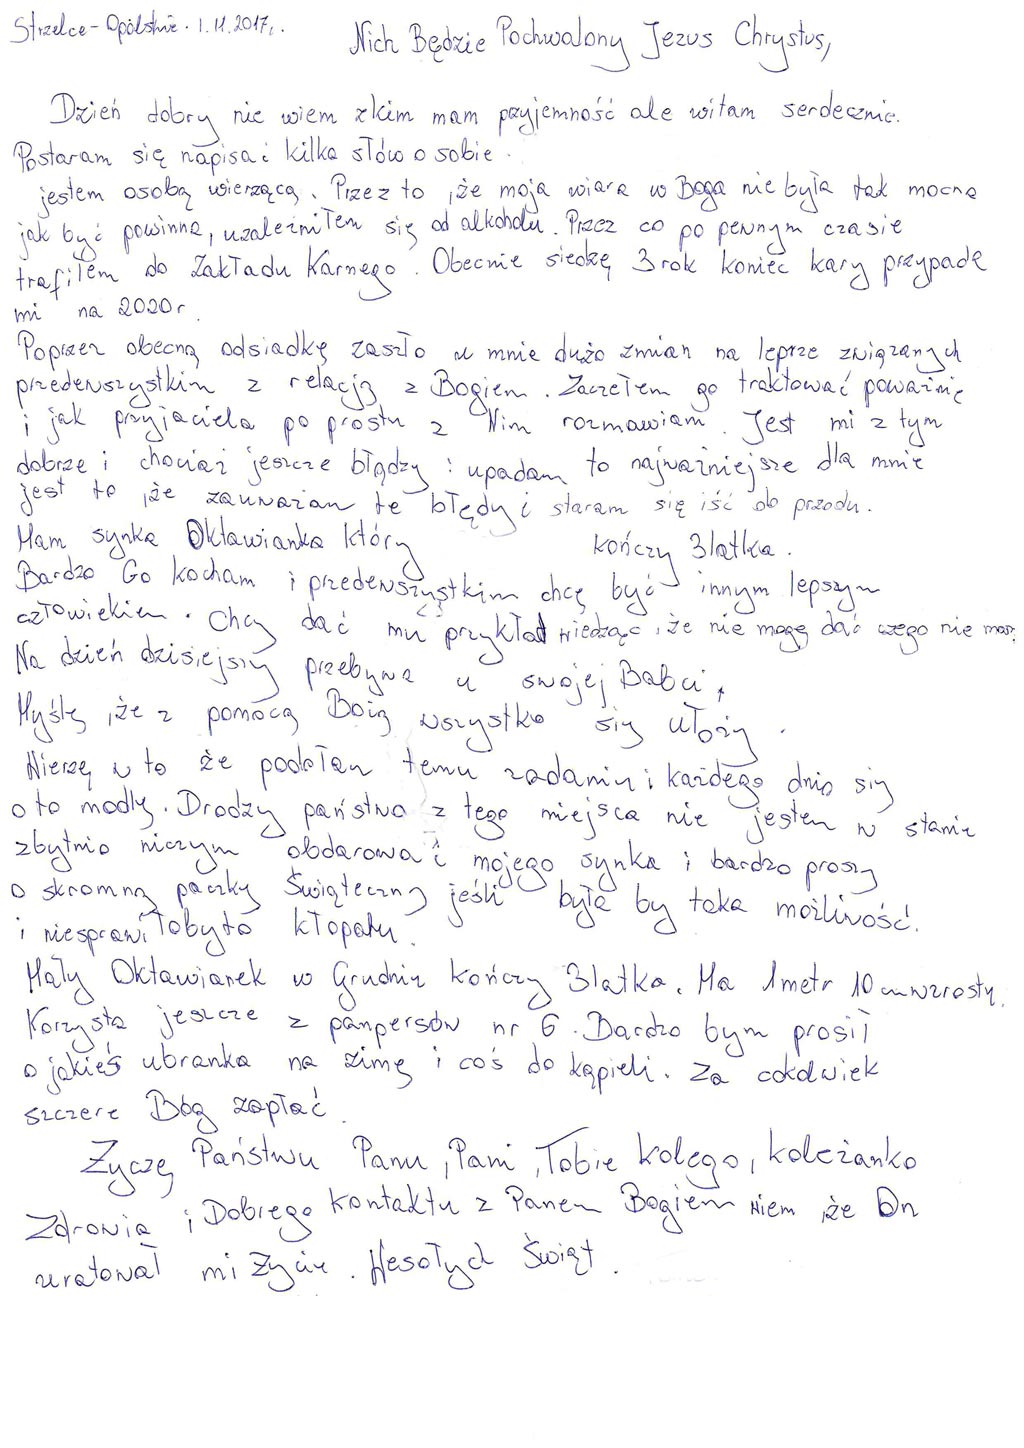 Strzelce-Opolskie. 1.11.2017r.
Nich Będzie Pochwalony Jezus Chrystus,
Dzień dobry nie wiem zkim mam przyjemność ale witam serdecznie.
Postaram się napisać kilka słów o sobie.
jestem osobą wierzącą. Przez to ,że moja wiara w Boga nie była tak mocna
jak być powinna, uzależniłem się od alkoholu. Przez co po pewnym czasie
trafiłem do Zakładu Karnego. Obecnie siedzę 3 rok koniec kary przypada
mi na 2020r.
Poprzez obecną odsiadkę zaszło u mnie dużo zmian na leprze związanych
przedewszystkim z relacją z Bogiem. Zaczełem go traktować poważnie
i jak przyjaciela po prostu z Nim rozmawiam. Jest mi z tym
dobrze i chociaż jeszcze błądzę i upadam to najważniejsze dla mnie
jest to ,że zauważam te błędy i staram się iść do przodu.
Mam synka Oktawianka który kończy 3latka.
Bardzo Go kocham i przedewszystkim chcę być innym lepszym
człowiekiem. Chcę dać mu przykład wiedząc ,że nie mogę dać czego nie mam.
Na dzień dzisiejszy przebywa u swojej Babci.
Myślę ,że z pomocą Bożą wszystko się ułoży.
Wierzę w to że podołam temu zadaniu i każdego dnia się
o to modlę. Drodzy państwo z tego miejsca nie jestem w stanie
zbytnio niczym obdarować mojego synka i bardzo proszę
o skromną paczkę Świąteczną jeśli była by taka możliwość.
i niesprawiłobyto kłopotu.
Mały Oktawianek w Grudniu kończy 3latka. Ma 1metr 10cm wzrostu.
Korzysta jeszcze z panpersów nr 6. Bardzo bym prosił
o jakieś ubranka na zimę i coś do kąpieli. Za cokolwiek
szczere Bóg zapłać.
Życzę Państwu Panu, Pani, Tobie kolego, koleżanko
Zdrowia i Dobrego kontaktu z Panem Bogiem wiem ,że On
uratował mi życie. Wesołych Świąt.